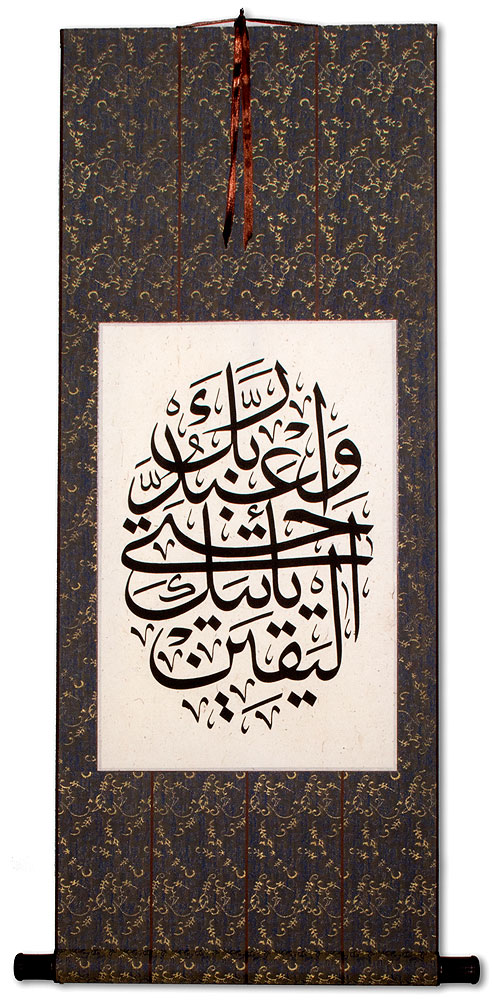 وَاعْبُدْ رَبَّكَ
حَتَّى
يَأْتِيَكَ
الْيَقِينُ